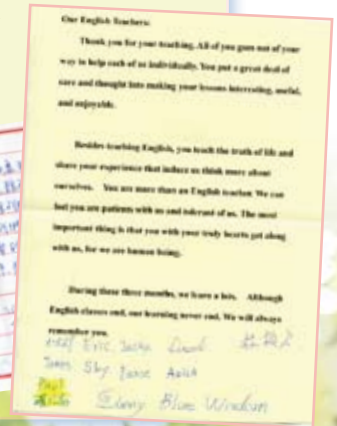 Our English Teachers:
Thank you for your teaching. All of you goes out of your
way to help each of us individually. You put a great deal of
care and thought into making your lessons interesting, useful,
and enjoyable.
Besides teaching English, you teach the truth of life and
share your experience that induce us think more about
ourselves. You are more than an English teacher. We can
feel you are patients with us and tolerant of us. The most
important thing is that you with your truly hearts get along
with us, for we are human being.
During these three months, we learn a lots. Although
English classes end, our learning never end. We will always
remember you.
Eric Jacky
Sky
Blue Windson